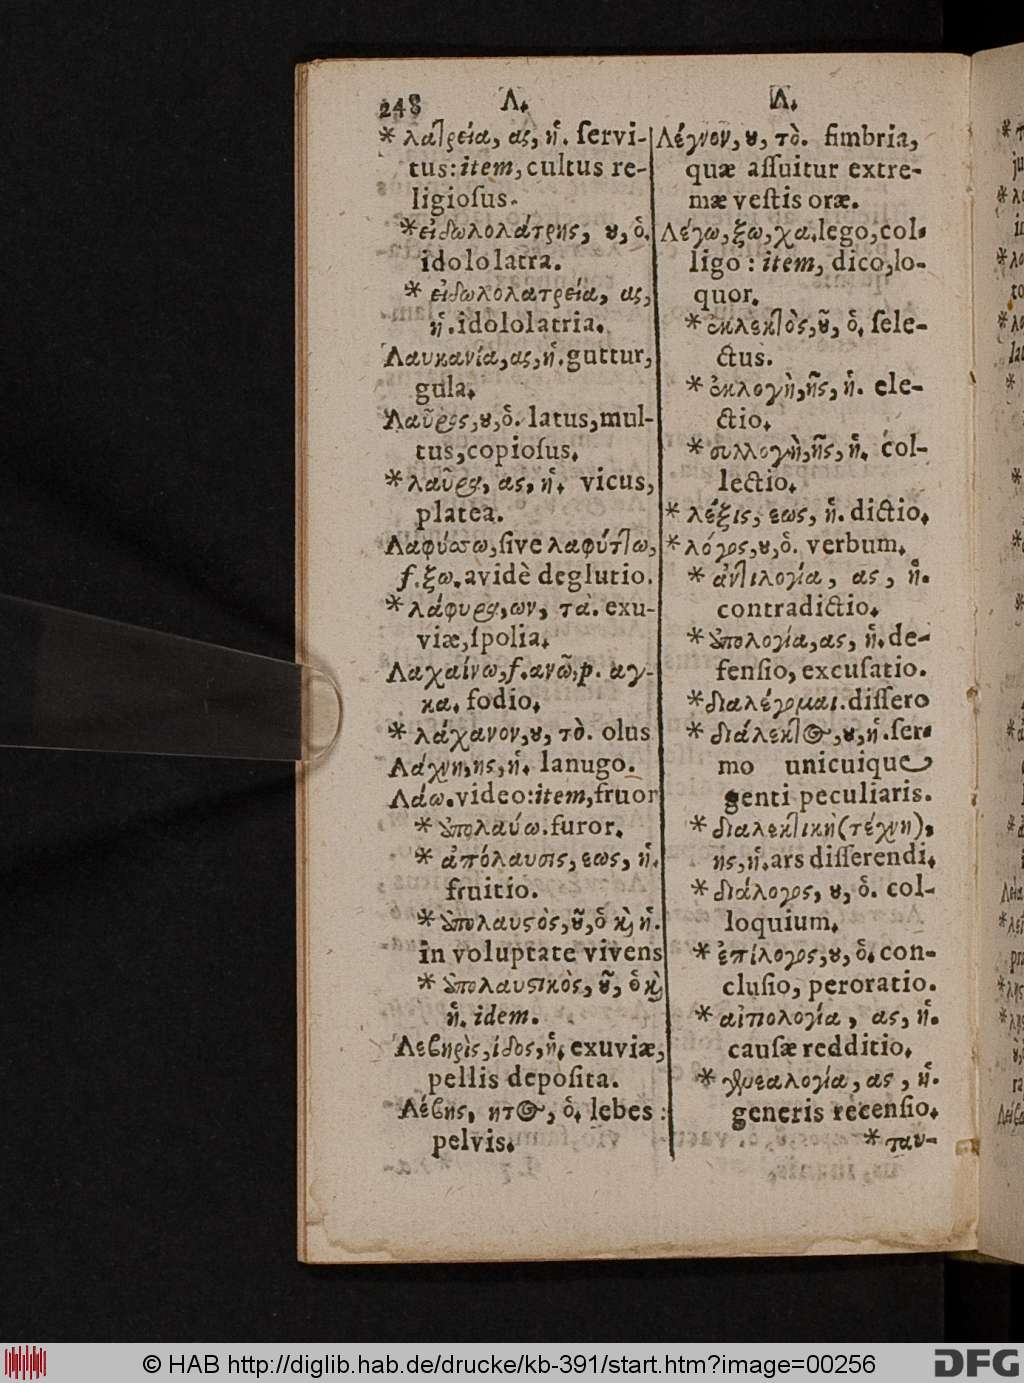 248 Λ. Λ.
* λατρεία, ας, ἡ. ſervi-
tus: item, cultus re-
ligioſus.
* εἰδωλολάτρης, ου, ὁ.
idololatra.
* εἰδωλολατρεία, ας,
ἡ. idololatria.
Λαυκανία, ας, ἡ. guttur,
gula.
Λαῦρος, ου, ὁ. latus, mul-
tus, copioſus.
* λαῦρα, ας, ἡ. vicus,
platea.
Λαφύσσω, ſive λαφύττω,
f. ξω. avidè deglutio.
* λάφυρα, ων, τὰ. exu-
viæ, ſpolia.
Λαχαίνω, f. ανῶ, p. αγ-
κα. fodio.
* λάχανον, ου, τὸ. olus
Λάχνη, ης, ἡ. lanugo.
Λάω. video: item, fruor
* ἀπολαύω. furor.
* ἀπόλαυσις, εως, ἡ.
fruitio.
* ἀπολαυστὸς, οῦ, ὁ καὶ ἡ.
in voluptate vivens
* ἀπολαυστικὸς, οῦ, ὁ καὶ
ἡ. idem.
Λεβηρὶς, ίδος, ἡ. exuviæ,
pellis depoſita.
Λέβης, ητος, ὁ. lebes:
pelvis.
Λέγνον, ου, τὸ. fimbria,
quæ aſſuitur extre-
mæ veſtis oræ.
Λέγω, ξω, χα. lego, col-
ligo: item, dico, lo-
quor.
* ἐκλεκτὸς, οῦ, ὁ. ſele-
ctus.
* ἐκλογὴ, ῆς, ἡ. ele-
ctio.
* συλλογὴ, ῆς, ἡ. col-
lectio.
* λέξις, εως, ἡ. dictio.
* λόγος, ου, ὁ. verbum.
* ἀντιλογία, ας, ἡ.
contradictio.
* ἀπολογία, ας, ἡ. de-
fenſio, excuſatio.
* διαλέγομαι. diſſero
* διάλεκτος, ου, ἡ. ſer-
mo unicuique
genti peculiaris.
* διαλεκτικὴ (τέχνη),
ης, ἡ. ars diſſerendi.
* διάλογος, ου, ὁ. col-
loquium.
* ἐπίλογος, ου, ὁ. con-
cluſio, peroratio.
* αἰτιολογία, ας, ἡ.
cauſæ redditio.
* γενεαλογία, ας, ἡ.
generis recenſio.
* ταυ-
© HAB http://diglib.hab.de/drucke/kb-391/start.htm?image=00256
DFG